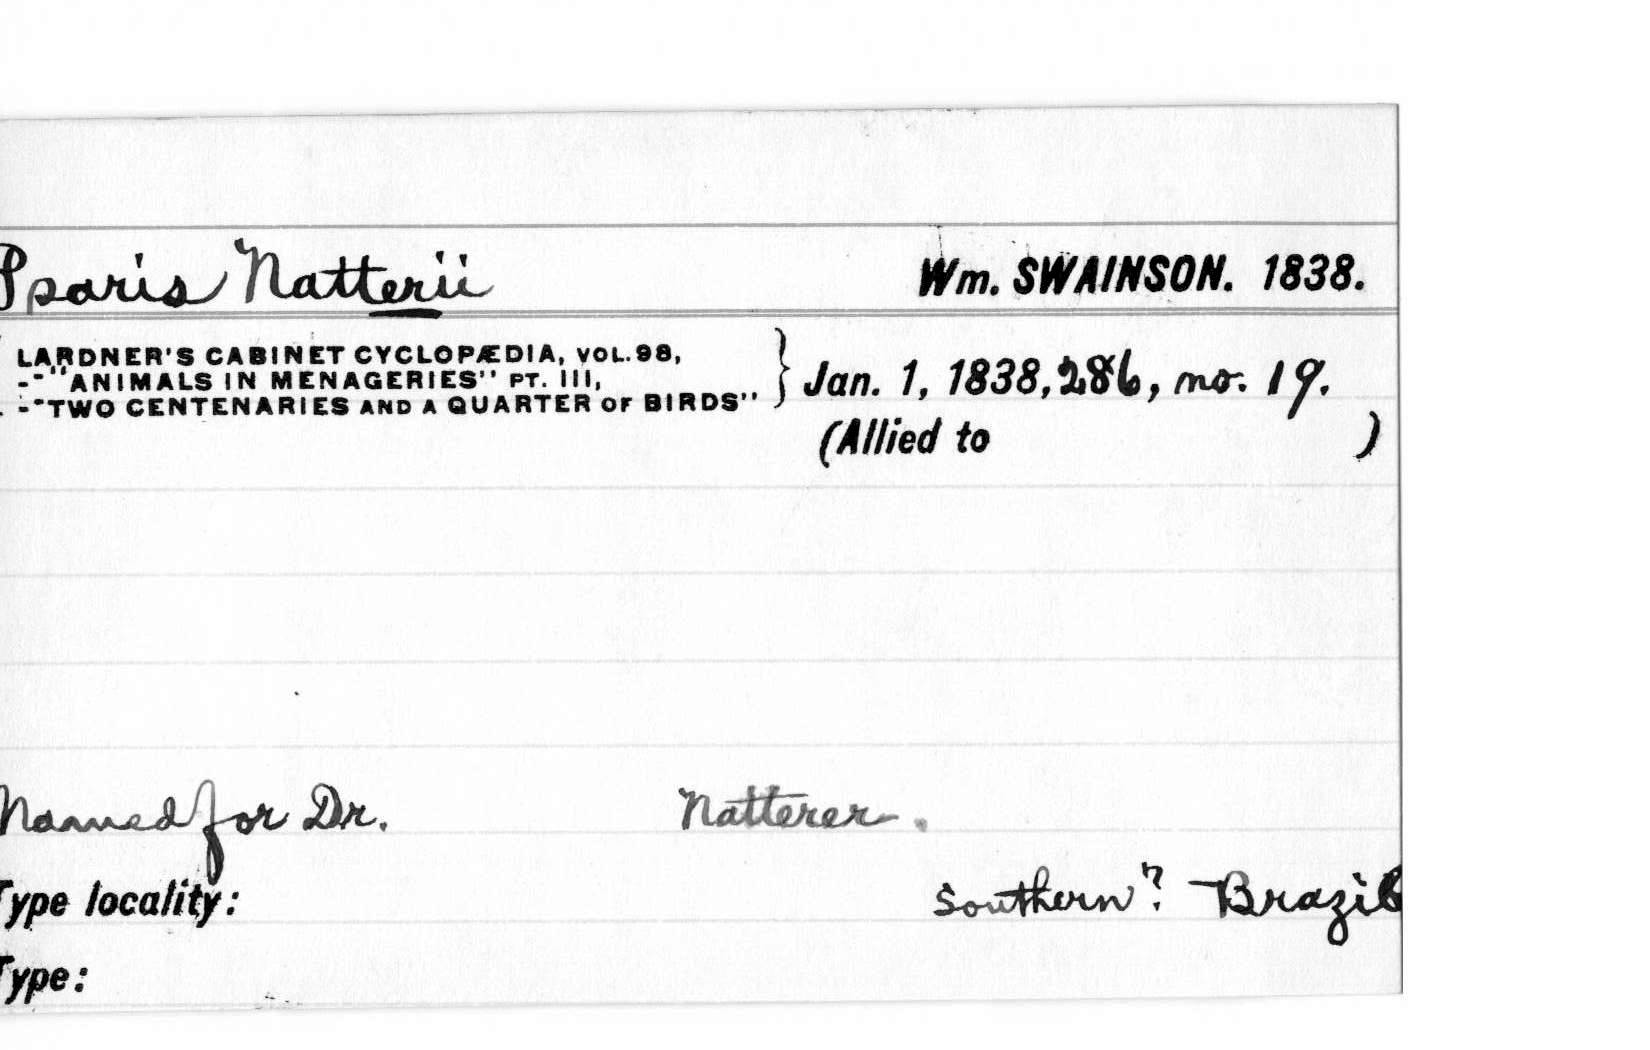 Pparis Natterii Wm. SWAINSON. 1838.
LARDNER'S CABINET CYCLOPÆDIA, VOL. 98,
-"ANIMALS IN MENAGERIES" PT. III,
-"TWO CENTENARIES AND A QUARTER OF BIRDS" } Jan. 1, 1838, 286, no. 19.
(Allied to )
Named for Dr. Natterer.
Type locality: Southern? Brazil
Type: